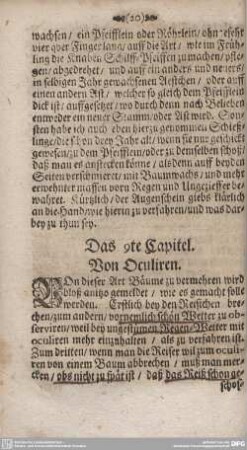 (20)
wachsen / ein Pfeifflein oder Röhrlein / ohngefehr
vier oder Finger lang / auff die Art / wie im Früh-
ling die Knaben Schilff-Pfeiffen zu machen / pfle-
gen / abgedrehet / und auff ein anders und neuers /
in selbigen Jahr gewachsenen Aestchen / oder auff
einen andern Ast / welcher so gleich dem Pfeifflein
dick ist / auffgesetzet / wo durch denn nach Belieben
entweder ein neuer Stamm / oder Ast wird. Son-
sten habe ich auch eben hierzu genommen Schieß-
linge / die schon drey Jahr alt / wenn sie nur geschickt
gewesen / zu dem Pfeifflein / oder zu demselben schoß /
daß man es anstecken könne / als denn auff beyden
Seiten verschmieret / mit Baumwachs / und mehr
erwehnter massen vorn Regen und Ungeziefer be-
wahret. Kürtzlich / der Augenschein giebs klärlich
an die Hand / wie hierin zu verfahren / und was dar-
bey zu thun sey.
Das 9te Capitel.
Von Oculiren.
Von dieser Art Bäume zu vermehren wird
bloß anitzo gemeldet / wie es gemacht solle
werden. Erstlich bey den Reißchen bre-
chen / zum andern / vornemlich schön Wetter zu ob-
serviren / weil bey ungestümen Regen / Wetter mit
oculiren mehr einzuhalten / als zu verfahren ist.
Zum dritten / wenn man die Reiser wil zum oculi-
ren von einem Baum abbrechen / muß man mer-
cken / obs nicht zu spät ist / daß das Reiß schon ge-
schos-